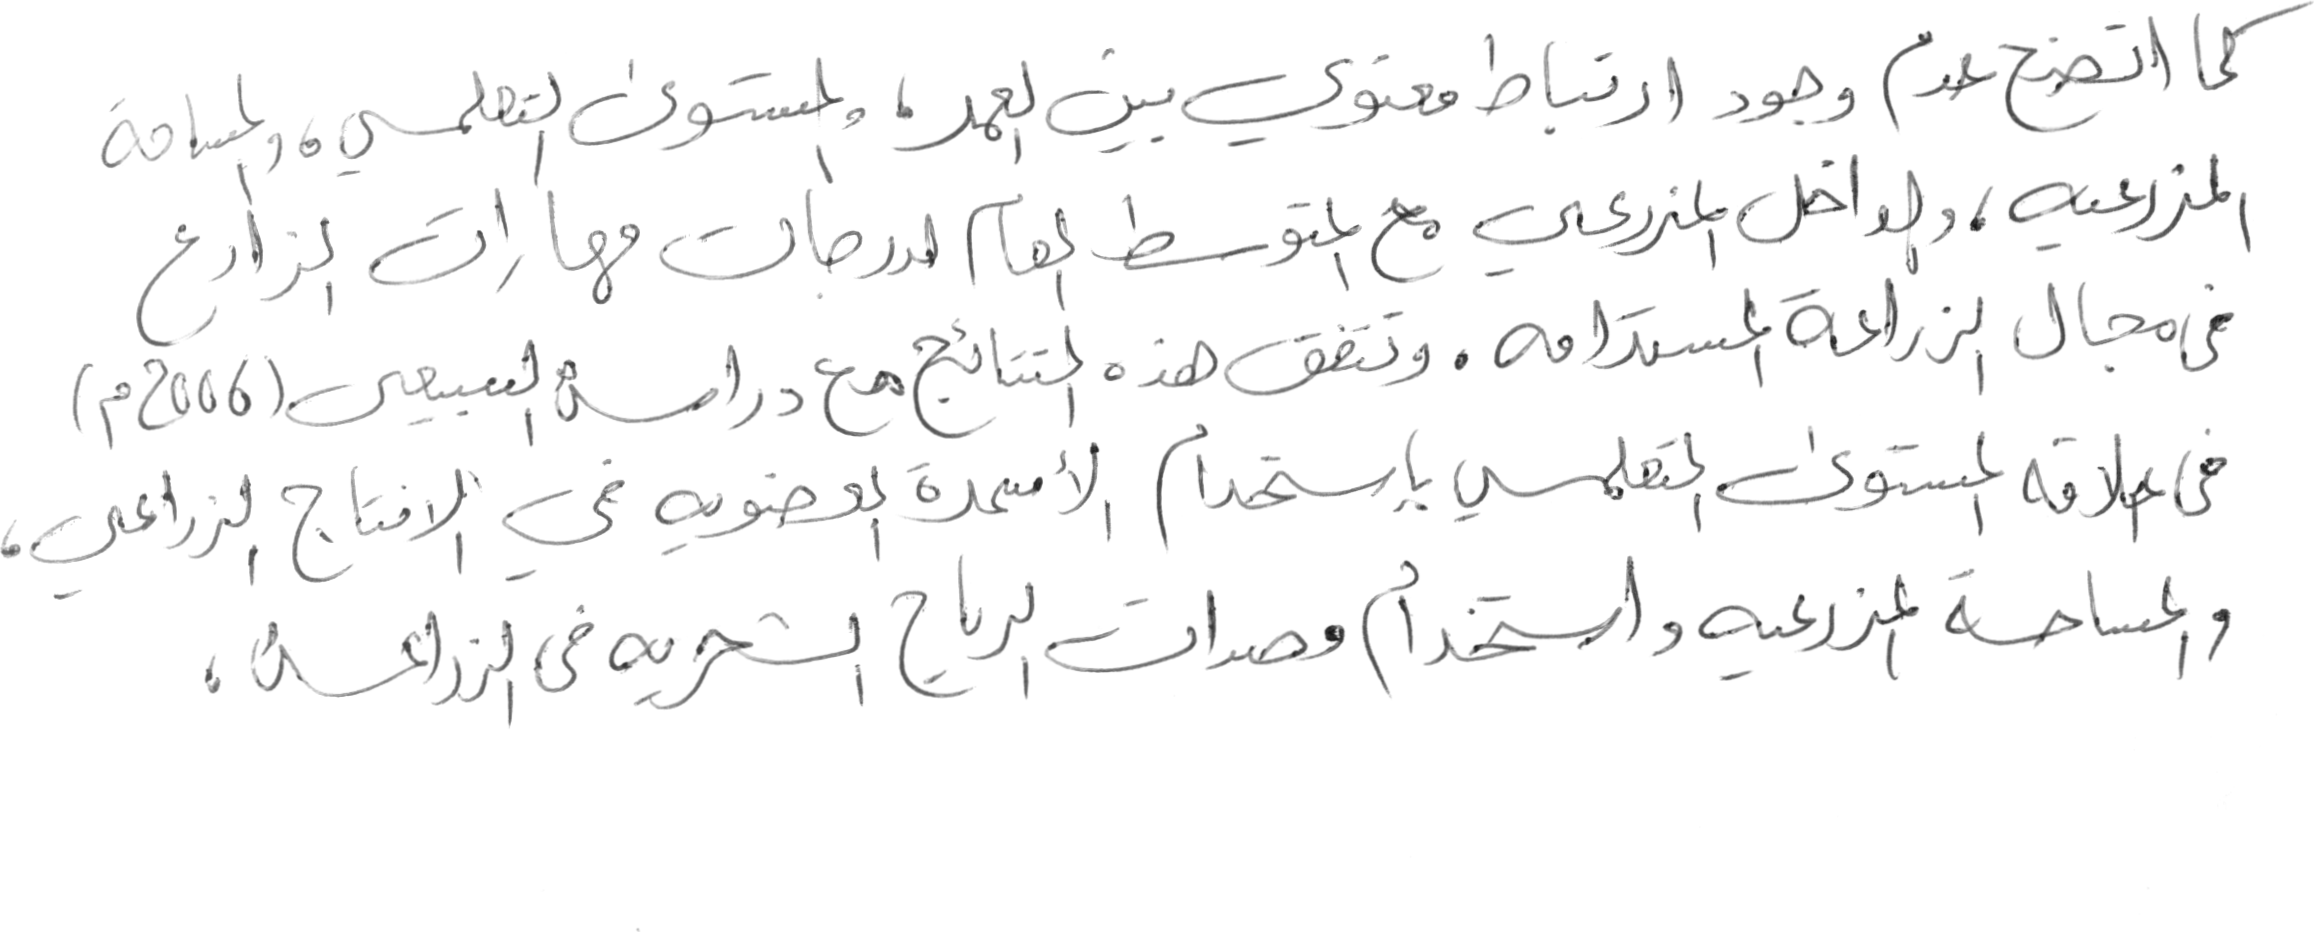 كما اتضح عدم وجود ارتباط معنوي بين العمر، والمستوى التعلمي، والمساحة
المزرعيه، والداخل المزرعي مع المتوسط العام لدرجات مهارات الزارع
في مجال الزراعة المستدامه. وتتفق هذه النتائج مع دراسة السبيعي (2006م)
في علاقه المستوى التعلمي باستخدام الأسمدة العضويه في الانتاج الزراعي،
والمساحة المزرعيه واستخدام مصدات الرياح الشجريه في الزراعة،